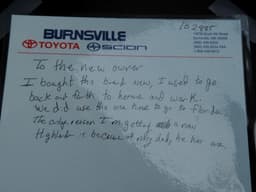 102885
BURNSVILLE
TOYOTA SCION
To the new owner
I bought this brand new, I used to go
back and forth to home and work.
We did use the one time to go to Florida.
The only reason I m getting a new
Highlander is because of my dad, he has one